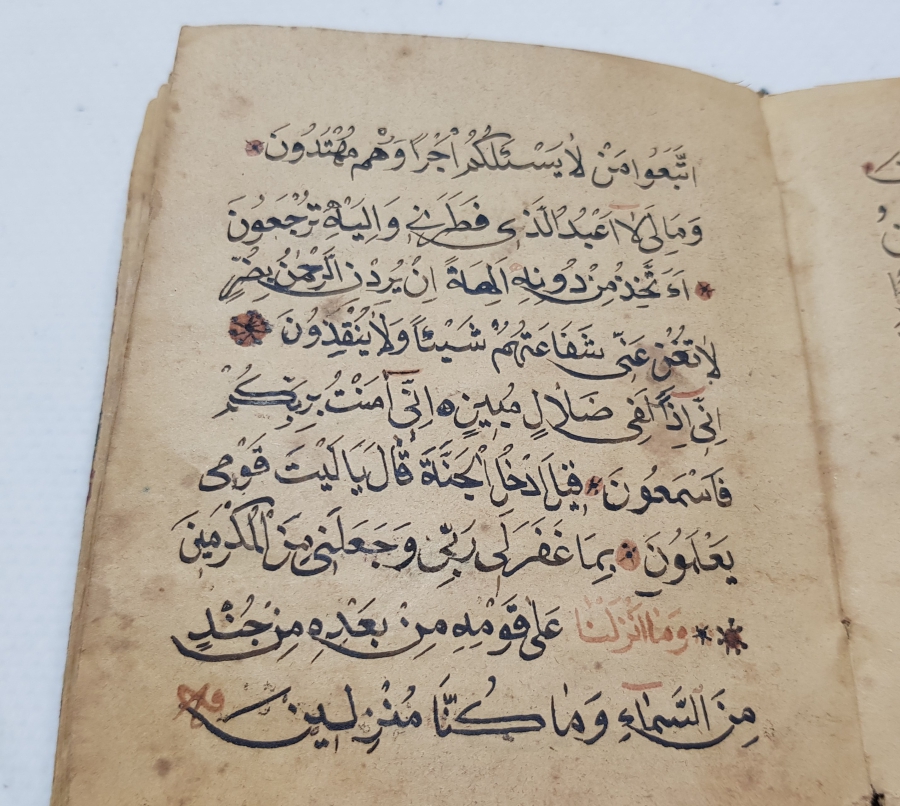 اتَّبَعُوا مَنْ لَا يَسْئَلُكُمْ اَجْرًا وَهُمْ مُهْتَدُونَ
وَمَالِىَ لَا اَعْبُدُ الَّذِى فَطَرَنِى وَاِلَيْهِ تُرْجَعُونَ
ءَاَتَّخِذُ مِنْ دُونِهِ اٰلِهَةً اِنْ يُرِدْنِ الرَّحْمٰنُ بِضُرٍّ
لَا تُغْنِ عَنِّى شَفَاعَتُهُمْ شَيْئًا وَلَا يُنْقِذُونَ
اِنِّى اِذًا لَفِى ضَلَالٍ مُبِينٍ ه اِنِّى اٰمَنْتُ بِرَبِّكُمْ
فَاسْمَعُونَ قِيلَ ادْخُلِ الْجَنَّةَ قَالَ يَا لَيْتَ قَوْمِى
يَعْلَمُونَ بِمَا غَفَرَلِى رَبِّى وَجَعَلَنِى مِنَ الْمُكْرَمِينَ
وَمَا اَنْزَلْنَا عَلٰى قَوْمِهِ مِنْ بَعْدِهِ مِنْ جُنْدٍ
مِنَ السَّمَاءِ وَمَا كُنَّا مُنْزِلِينَ